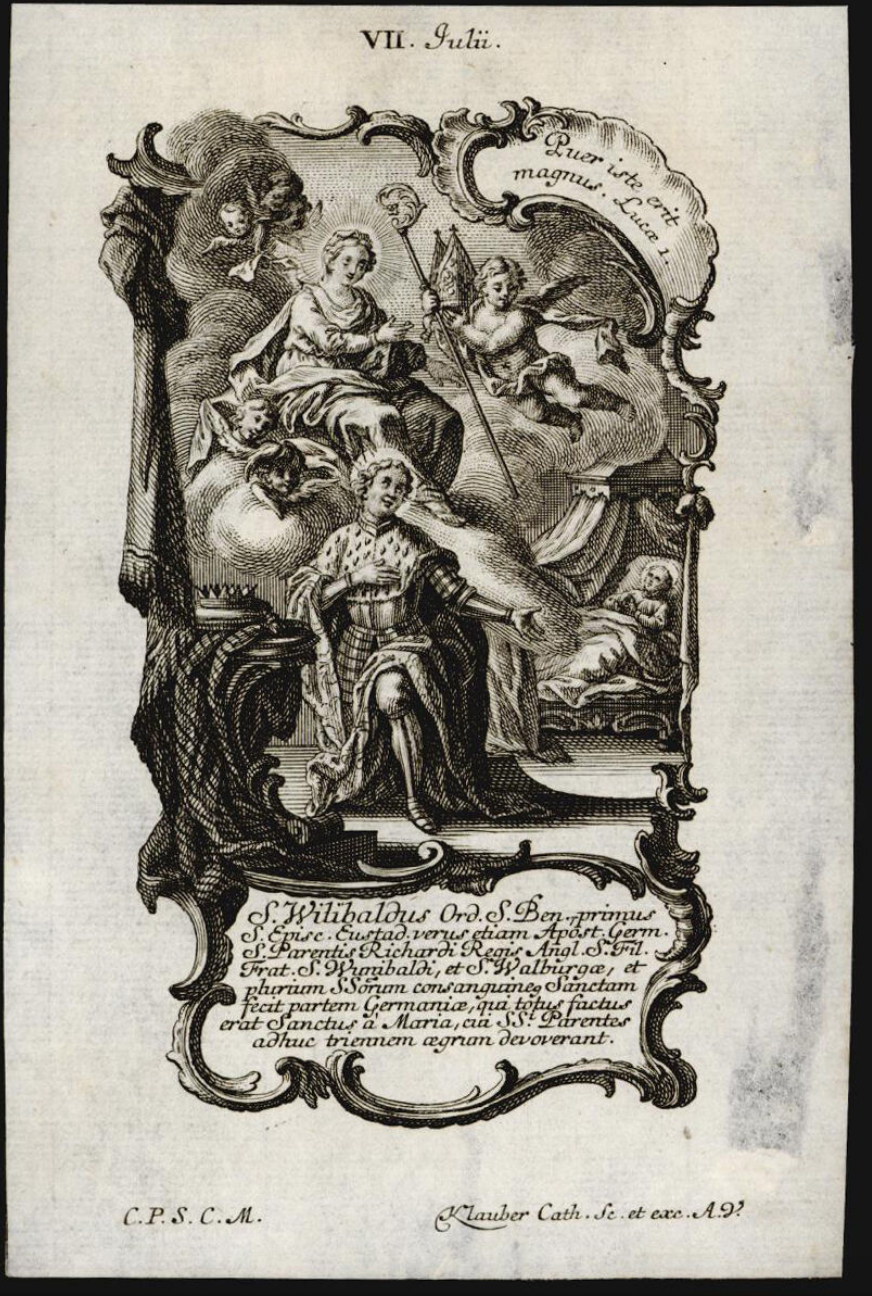 VII. Julii.
Puer iste erit
magnus. Lucæ 1.
S. Wilibaldus Ord. S. Ben. primus
S. Episc. Eustad. verus etiam Apost. Germ.
S. Parentis Richardi Regis Angl. S. Fil.
Frat. S. Wunibaldi, et S. Walburgæ, et
plurium SSorum consanguineq Sanctam
fecit partem Germaniæ, qui totus factus
erat Sanctus a Maria, cui SS.i Parentes
adhuc triennem ægrum devoverant.
C. P. S. C. M.
Klauber Cath. Sc. et exc. A. V.